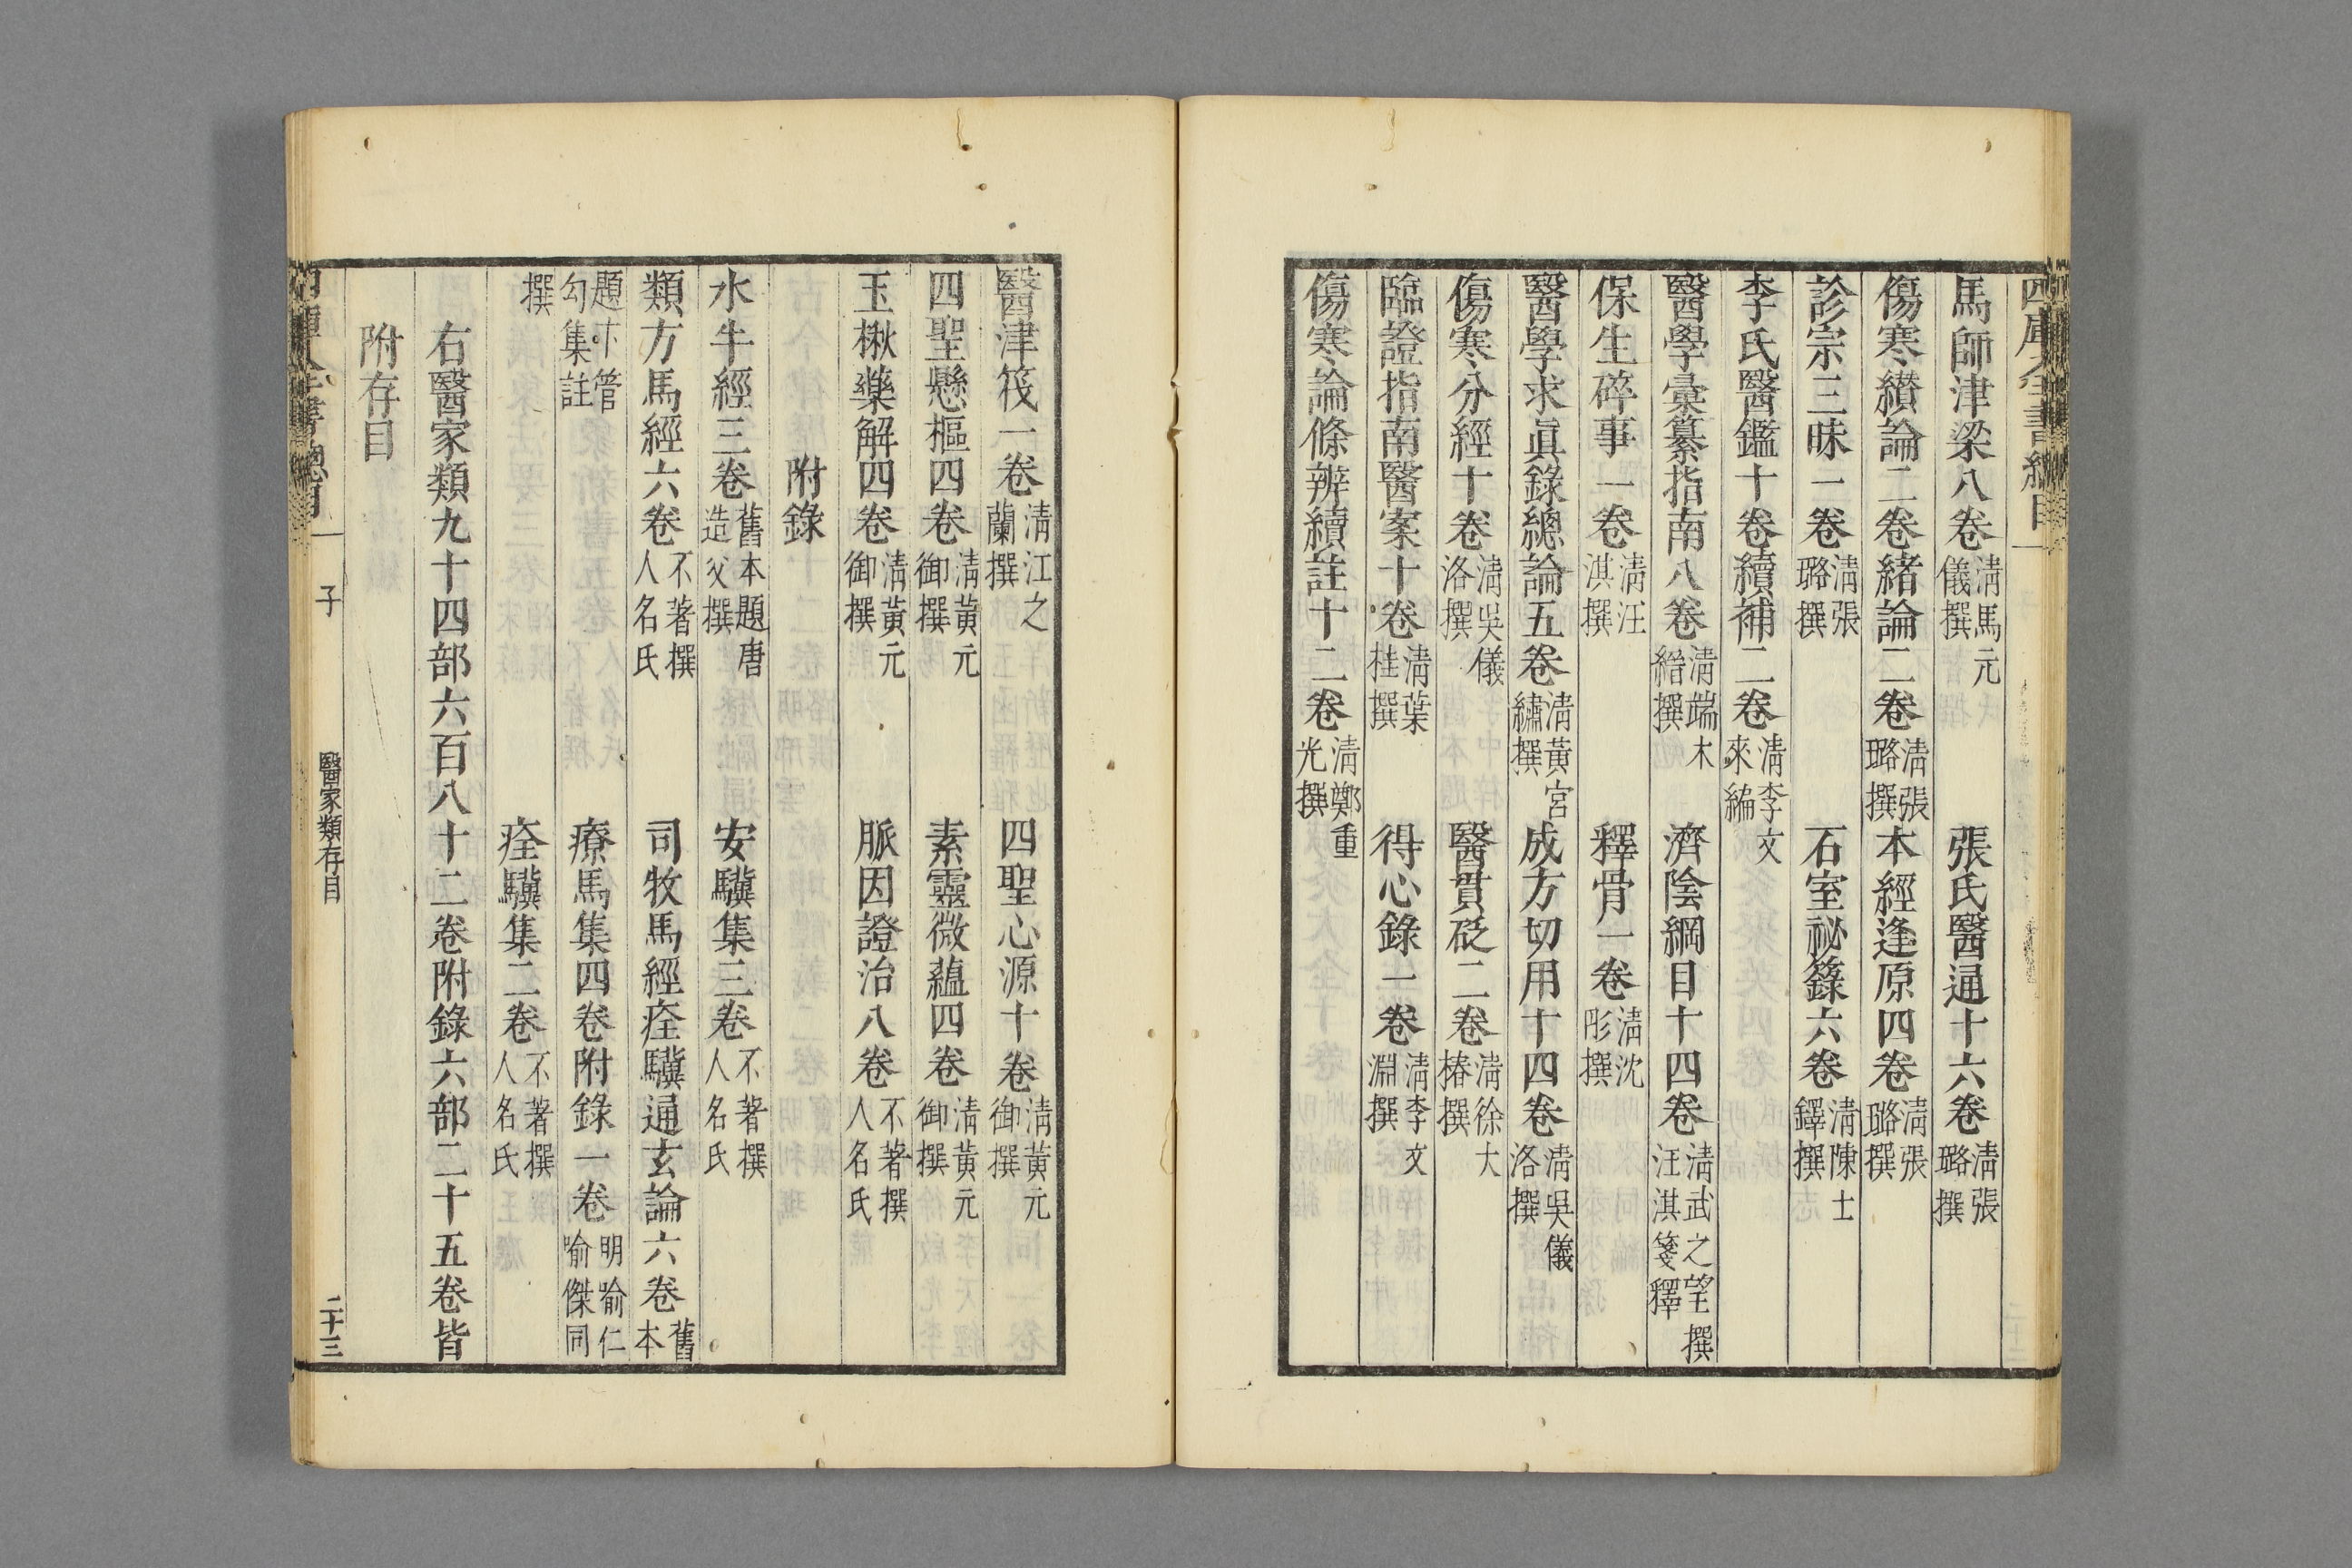 四庫全書總目
馬師津梁八卷 清馬元儀撰 張氏醫通十六卷 清張璐撰
傷寒纘論二卷緒論二卷 清張璐撰 本經逢原四卷 清張璐撰
診宗三昧一卷 清張璐撰 石室祕籙六卷 清陳士鐸撰
李氏醫鑑十卷續補二卷 清李文來編
醫學彙纂指南八卷 清端木縉撰 濟陰綱目十四卷 清武之望撰汪淇箋釋
保生碎事一卷 清汪淇撰 釋骨一卷 清沈彤撰
醫學求眞錄總論五卷 清黃宮繡撰 成方切用十四卷 清吳儀洛撰
傷寒分經十卷 清吳儀洛撰 醫貫砭二卷 清徐大椿撰
臨證指南醫案十卷 清葉桂撰 得心錄一卷 清李文淵撰
傷寒論條辨續註十二卷 清鄭重光撰
醫津筏一卷 清江之蘭撰 四聖心源十卷 清黃元御撰
四聖懸樞四卷 清黃元御撰 素靈微蘊四卷 清黃元御撰
玉楸藥解四卷 清黃元御撰 脈因證治八卷 不著撰人名氏
附錄
水牛經三卷 舊本題唐造父撰 安驥集三卷 不著撰人名氏
類方馬經六卷 不著撰人名氏 司牧馬經痊驥通玄論六卷 舊本
題卞管勾集註 療馬集四卷附錄一卷 明喻仁喻傑同
撰 痊驥集二卷 不著撰人名氏
右醫家類九十四部六百八十二卷附錄六部二十五卷皆
附存目
四庫全書總目 子 醫家類存目 二十三